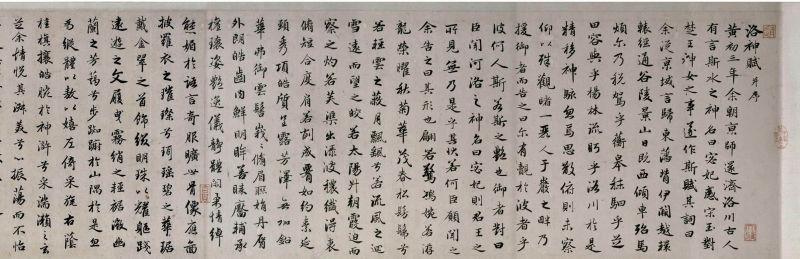 洛神賦 并序
黃初三年余朝京師還濟洛川古人
有言斯水之神名曰宓妃感宋玉對
楚王神女之事遂作斯賦其詞曰
余從京域言歸東藩背伊闕越轘
轅經通谷陵景山日既西傾車殆馬
煩爾乃稅駕乎蘅皋秣駟乎芝
田容與乎楊林流眄乎洛川於是
精移神駭忽焉思散俯則未察
仰以殊觀睹一麗人于巖之畔乃
援御者而告之曰爾有覿於彼者乎
彼何人斯若斯之艷也御者對曰
臣聞河洛之神名曰宓妃則君王之
所見無乃是乎其狀若何臣願聞之
余告之曰其形也翩若驚鴻婉若游
龍榮曜秋菊華茂春松髣髴兮
若輕雲之蔽月飄颻兮若流風之迴
雪遠而望之皎若太陽升朝霞迫而
察之灼若芙蕖出淥波穠纖得衷
脩短合度肩若削成腰如約素延
頸秀項皓質呈露芳澤無加鉛
華弗御雲髻峩峩脩眉聯娟丹脣
外朗皓齒內鮮明眸善睞靨輔承
權瓌姿艷逸儀靜體閑柔情綽
態媚於語言奇服曠世骨像應圖
披羅衣之璀璨兮珥瑤碧之華琚
戴金翠之首飾綴明珠以耀軀踐
遠遊之文履曳霧綃之輕裾微幽
蘭之芳藹兮步踟躕於山隅於是忽
焉縱體以敖以嬉左倚采旄右蔭
桂旗攘皓腕於神滸兮采湍瀨之玄
芝余情悅其淑美兮心振蕩而不怡